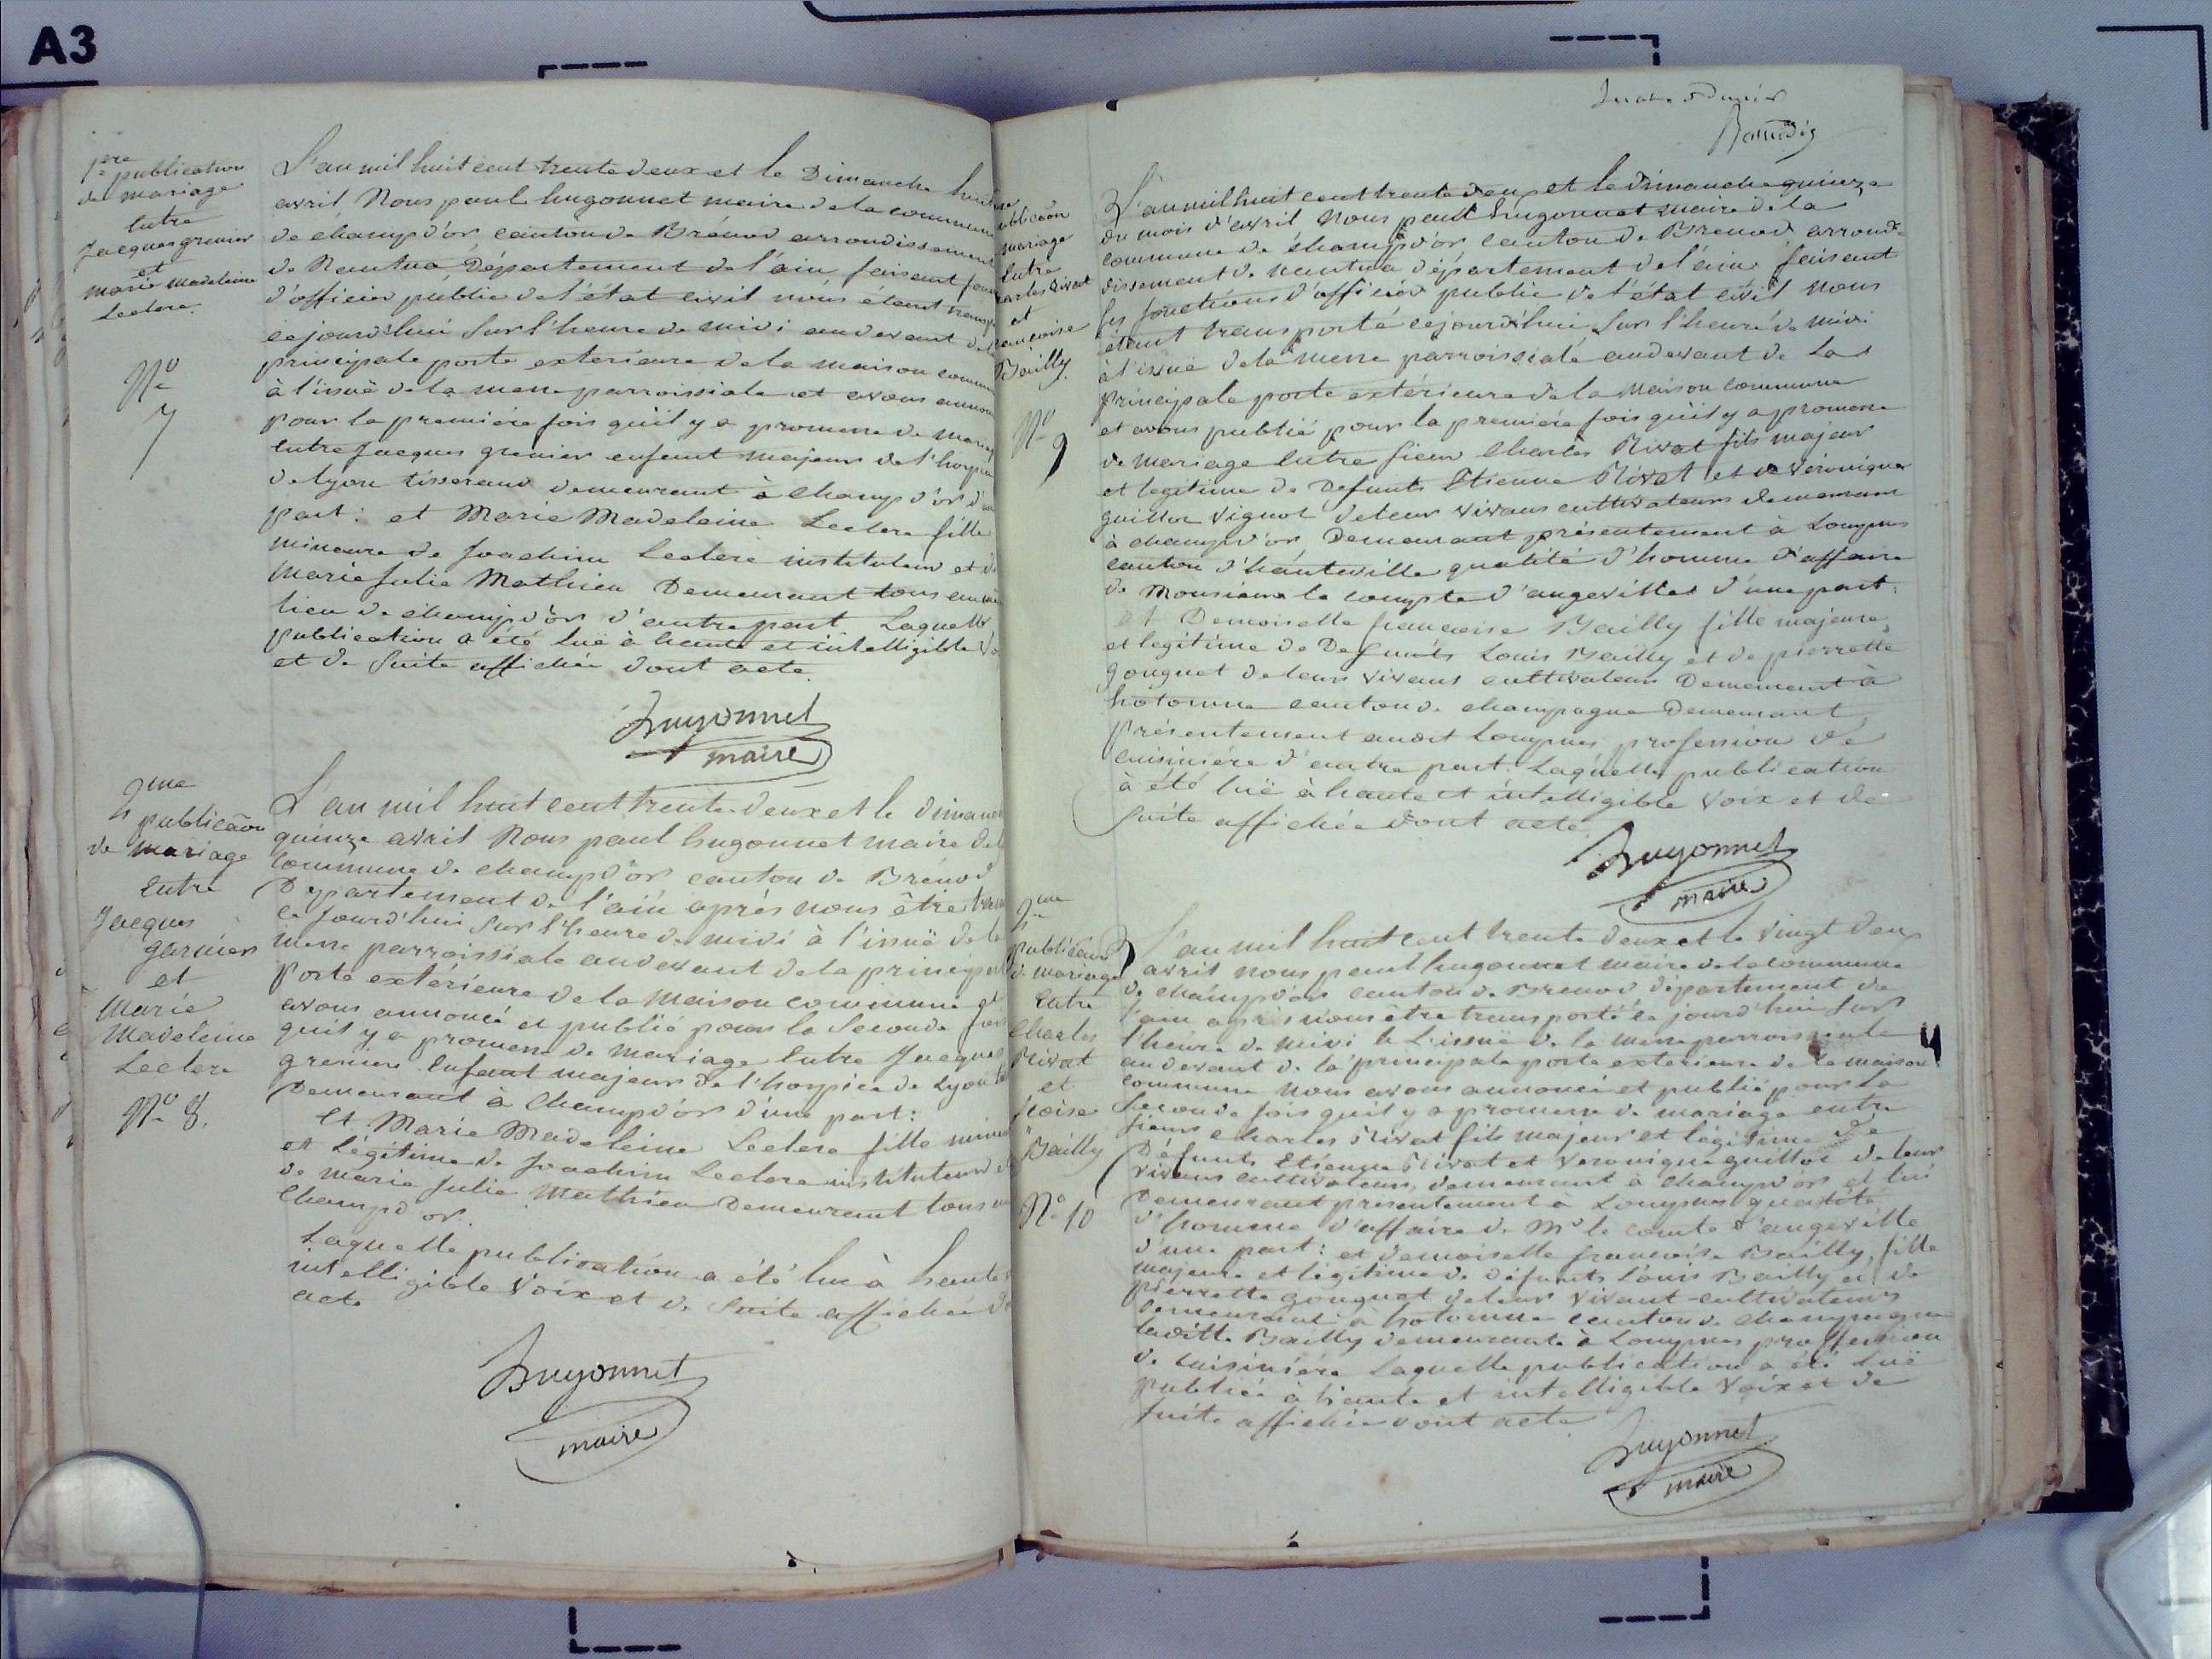 A3
1re publication
de mariage
Entre
Jacques grenier
et
marie madeleine
Leclere.
No
7
L'an mil huit cent trente deux et le Dimanche huit
avril Nous paul hugonnet maire de la commune
de champd'or canton de Brénod arrondissement
de Nantua Département de l'ain faisant
d'officier public de l'état civil nous étant
cejourd'hui Sur l'heure de midi audevant de
principale porte exterieure de la maison commu
à l'issuë de la messe parroissiale et avons annon
pour la première fois qu'il y a promesse de mariage
entre Jacques grenier enfant majeur de l'hospice
de lyon tisserand demeurant à champd'or d'une
part: et Marie Madeleine Leclere fille
mineure de Joachim Leclere instituteur et de
Marie Julie Mathieu Demeurant tous
lieu de champd'or d'autre part Laquelle
publication a été luë à haute et intelligible
et de Suite affichée dont acte.
hugonnet
maire
2me
publicaõn
de mariage
Entre
Jacques
garnier
et
Marie
Madeleine
Leclere
No 8.
L'an mil huit cent trente deux et le dimanche
quinze avril Nous paul hugonnet maire de la
Commune de champd'or canton de Brénod
Département de l'ain après nous être
ce Jourd'hui Sur l'heure de midi à l'issuë de la
messe parroissiale audevant de la principale
Porte extérieure de la Maison commune et
avons annoncé et publié pour la Seconde fois
qu'il y a promesse de mariage Entre Jacques
grenier Enfant majeur de l'hospice de Lyon
Demeurant à Champd'or d'une part:
Et Marie Madeleine Leclere fille mineure
et Légitime de Joachim Leclere instituteur et
de marie Julie Mathieu Demeurant tous
Champd'or.
Laquelle publication a été lue à haute
intelligible Voix et de Suite affichée
acte
hugonnet
maire
publicaõn
mariage
Entre
Charles Rivat
et
françoise
Bailly.
No
9
L'an mil huit cent trente deux et le dimanche quinze
du mois d'avril Nous paul hugonnet maire de la
commune de champd'or canton de Brenod arron-
dissement de nantua département de l'ain faisant
les fonctions d'officier public de l'état civil Nous
étant transporté cejourd'hui Sur l'heure de midi
à l'issuë de la messe parroissiale audevant de La
Principale porte extérieure de la Maison commune
et avons publié pour la première fois qu'il y a promesse
de Mariage Entre sieur Charles Rivat fils majeur
et legitime de Defunts Etienne Rivat et de Véronique
guillot Vignot deleur vivans cultivateurs demeurant
à champd'or, Demeurant présentement à Lompnes
canton d'hauteville qualité d'homme d'affaire
de Monsieur le compte d'angeville d'une part:
Et Demoiselle francoise Bailly fille majeure
et legitime de Defunts Louis Bailly et de pierrette
gouguet deleur vivans cultivateurs Demeurant à
hotonne canton de champagne Demeurant
Présentement audit Lompnes profession de
cuisinière d'autre part. Laquelle publication
à été luë à haute et intelligible Voix et de
Suite affichée dont acte
hugonnet
maire
2me
publicaõn
de mariage
Entre
Charles
Rivat
et
fcoise
Bailly
No 10
L'an mil huit cent trente deux et le vingt deux
avril nous paul hugonnet maire de la commune
de champd'or canton de Brenod département de
l'ain après nous être transporté ce jourd'hui sur
l'heure de midi à L'issuë de la messe parroissiale
au devant de la principale porte exterieure de la maison
commune nous avons annoncé et publié pour la
Seconde fois qu'il y a promesse de mariage entre
sieur Charles Rivat fils majeur et légitime de
Défunts Etienne Rivat et Veronique guillot deleur
vivans cultivateurs, demeurant à champd'or et lui
Demeurant présentement à Lompnes qualité
d'homme d'affaire de Mr le comte d'angeville
d'une part: et demoiselle francoise Bailly, fille
majeure et légitime de défunts Louis Bailly et de
Pierrette gouguet deleur vivant cultivateurs
demeurant à hotonne canton de champagne
ladite Bailly demeurante à Lompnes proffession
de cuisinière Laquelle publication a été luë
publiée à haute et intelligible Voix et de
Suite affichée dont acte
hugonnet
maire
4